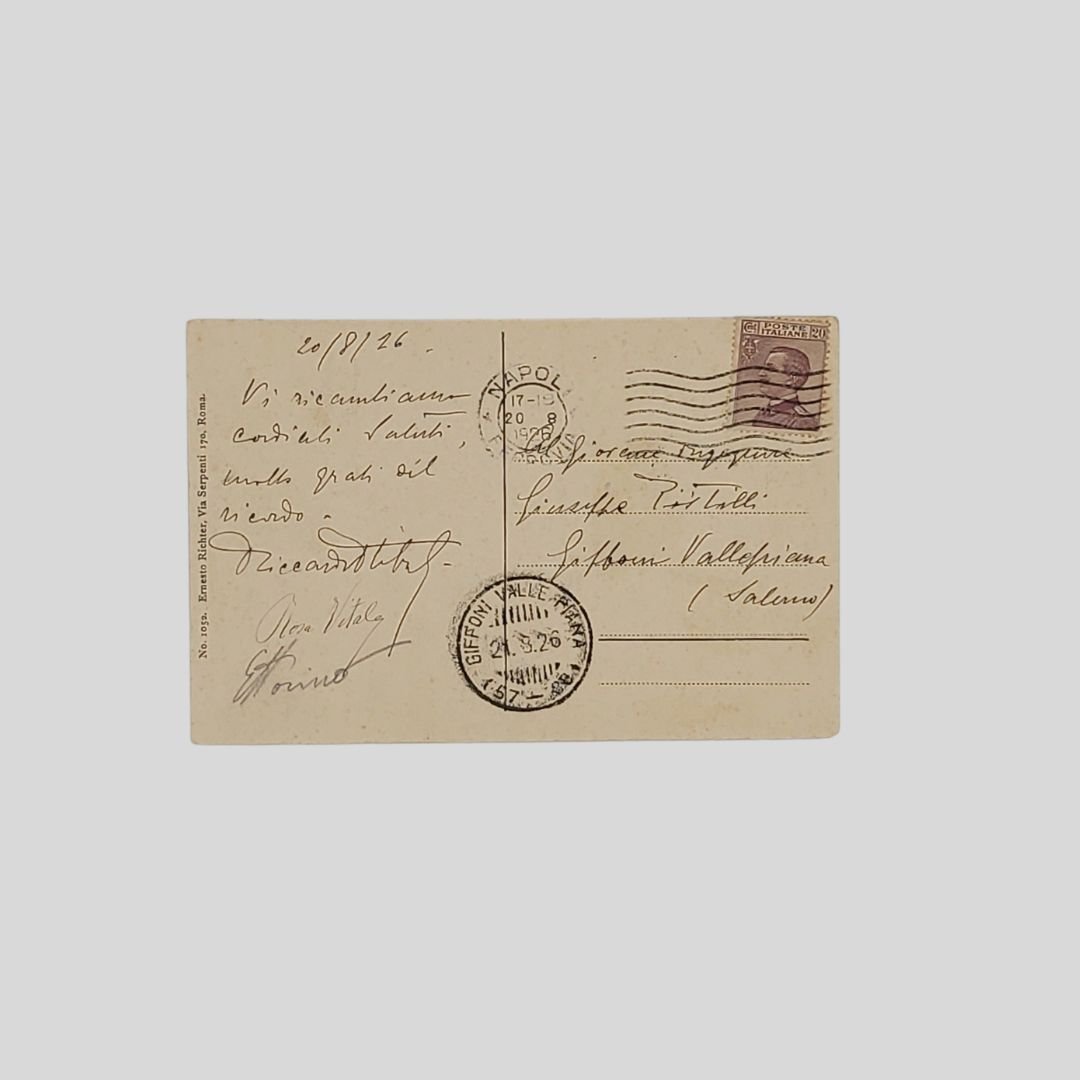 20/8/26.
Vi ricambiamo
cordiali saluti,
molto grati del
ricordo.
Riccardo Vitale
Rosa Vitale
No. 1052. Ernesto Richter, Via Serpenti 170, Roma.
NAPOLI
17-19
20 8
1926
FERROVIA
POSTE
ITALIANE
20
Al Giovane Ingegnere
Giuseppe Pistilli
Giffoni Vallepiana
(Salerno)
GIFFONI VALLE PIANA
21.8.26
(57-